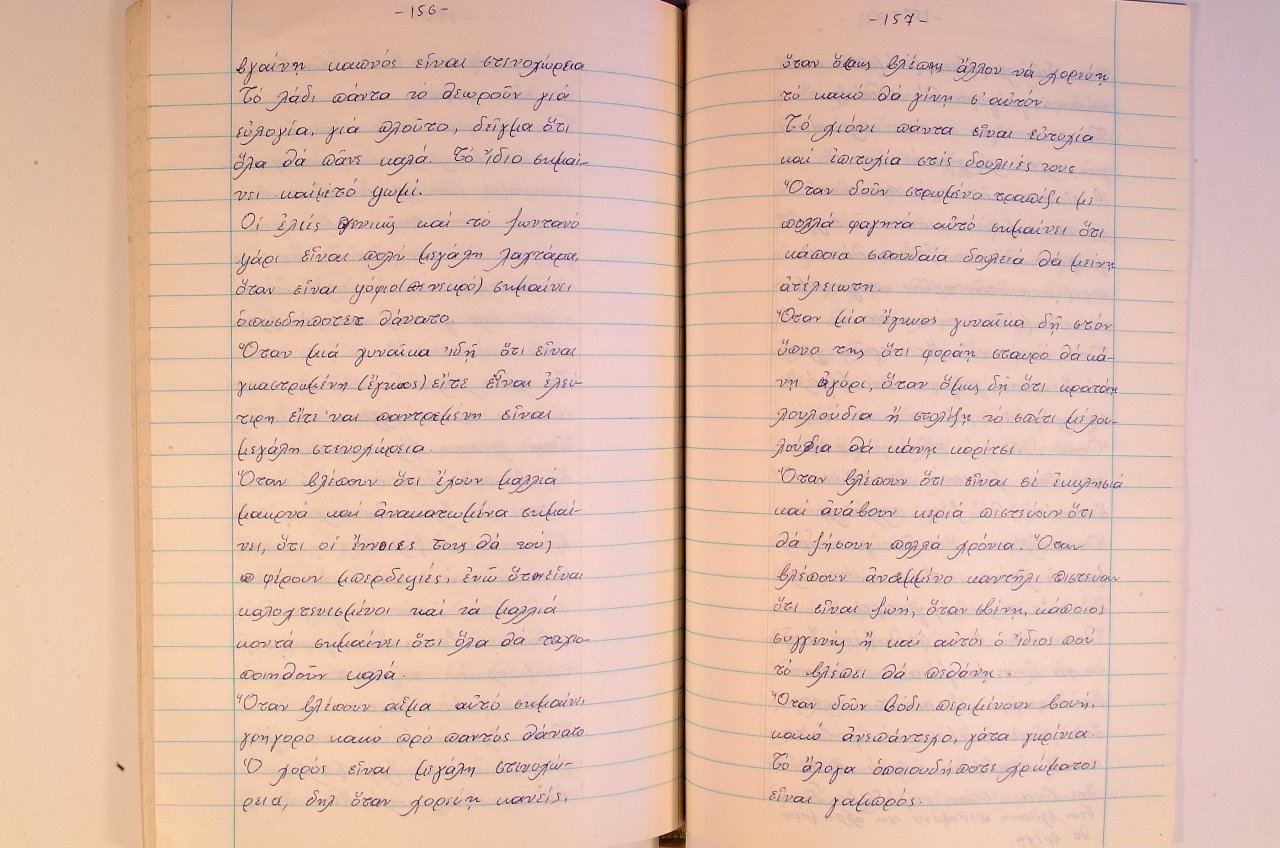 -156-
βγαίνη καπνός εἶναι στενοχώρεια
Τό λάδι πάντα τό θεωροῦν γιά
εὐλογία, γιά πλοῦτο, δεῖγμα ὅτι
ὅλα θά πᾶνε καλά. Τό ἴδιο σημαί-
νει καί μέ τό ψωμί.
Οἱ ἐλιές γενικῶς καί τό ζωντανό
ψάρι εἶναι πολύ μεγάλη λαχτάρα,
ὅταν εἶναι ψόφιο (πι νεκρό) σημαίνει
ὁπωσδήποτε θάνατο.
Ὅταν μιά γυναῖκα ἰδῆ ὅτι εἶναι
γκαστρωμένη (ἔγκυος) εἴτε εἶναι ἐλεύ-
τερη εἴτε 'ναι παντρεμένη εἶναι
μεγάλη στενοχώρεια.
Ὅταν βλέπουν ὅτι ἔχουν μαλλιά
μακρυά καί ἀνακατωμένα σημαί-
νει, ὅτι οἱ ἔννοιές τους θά τούς
φέρουν μπερδεψιές, ἐνῶ ὅταν εἶναι
καλοχτενισμένοι καί τά μαλλιά
κοντά σημαίνει ὅτι ὅλα θά τακτο-
ποιηθοῦν καλά.
Ὅταν βλέπουν αἷμα αὐτό σημαίνει
γρήγορο κακό πρό παντός θάνατο.
Ὁ χορός εἶναι μεγάλη στενοχώ-
ρεια, δηλ. ὅταν χορεύη κανείς,
-157-
ὅταν ὅμως βλέπης ἄλλον νά χορεύη
τό κακό θά γίνη σ' αὐτόν.
Τό χιόνι πάντα εἶναι εὐτυχία
καί ἐπιτυχία στίς δουλειές τους
Ὅταν δοῦν στρωμένο τραπέζι μέ
πολλά φαγητά αὐτό σημαίνει ὅτι
κάποια σπουδαία δουλειά θά μείνη
ἀτέλειωτη.
Ὅταν μία ἔγκυος γυναῖκα δῆ στόν
ὕπνο της ὅτι φοράη σταυρό θά κά-
νη ἀγόρι, ὅταν ὅμως δῆ ὅτι κρατάη
λουλούδια ἤ στολίζη τό σπίτι μέ λου-
λούδια θά κάνη κορίτσι.
Ὅταν βλέπουν ὅτι εἶναι σέ ἐκκλησιά
καί ἀνάβουν κεριά πιστεύουν ὅτι
θά ζήσουν πολλά χρόνια. Ὅταν
βλέπουν ἀναμμένο καντήλι πιστεύουν
ὅτι εἶναι ζωή, ὅταν σβένη, κάποιος
συγγενής ἤ καί αὐτός ὁ ἴδιος πού
τό βλέπει θά πεθάνη.
Ὅταν δοῦν βόδι περιμένουν βουή,
κακό ἀνεπάντεχο, γάτα γκρίνια.
Τό ἄλογο ὁποιουδήποτε χρώματος
εἶναι γαμπρός.